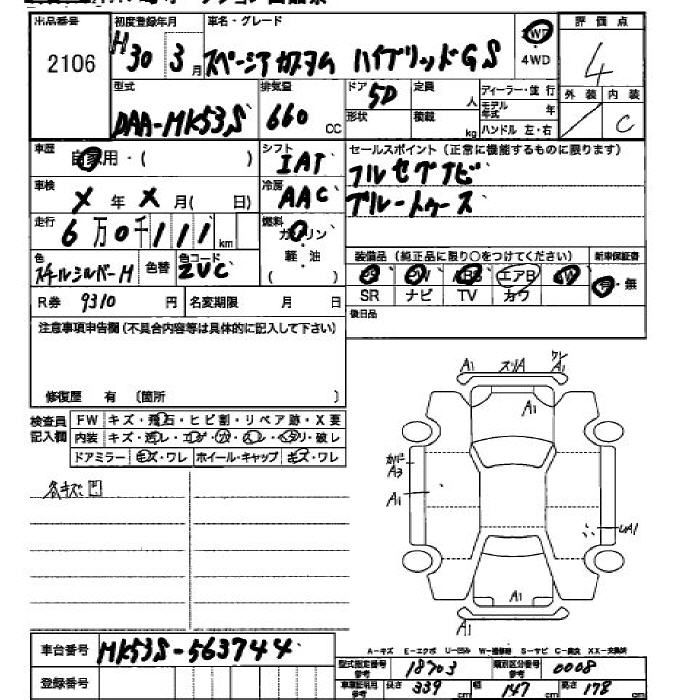 出品番号 初度登録年月 車名・グレード 評価点
2106 H30 3月 スペーシアカスタム ハイブリッドGS WT・4WD 4
型式 排気量 ドア 5D 定員 人 ディーラー・並行 外装 内装
DAA-MK53S 660 CC 形状 積載 kg モデル年式 年 C
ハンドル 左・右
車歴 自家用・( ) シフト IAT セールスポイント(正常に機能するものに限ります)
車検 X年X月( 日) 冷房 AAC フルセグナビ
ブルートゥース
走行 6万0千111km 燃料 ガソリン・軽油 ( )
色 スチールシルバーM 色替 色コード ZVC 装備品(純正品に限り○をつけてください) 新車保証書
PS PW ABS エアB AW 有・無
R券 9310 円 名変期限 月 日 SR ナビ TV カワ
注意事項申告欄(不具合内容等は具体的に記入して下さい) 後日品
修復歴 有 〔箇所 〕
検査員記入欄 FW キズ・飛石・ヒビ割・リペア跡・X要
内装 キズ・汚レ・コゲ・穴・スレ・ヘタリ・破レ
ドアミラー キズ・ワレ ホイール・キャップ キズ・ワレ
各キズ凹
A1 スリA ワレ A1
A1
カバ A3
A1
UA1
A1
A1
A-キズ E-エクボ U-凹み W-補修跡 S-サビ C-腐食 XX-交換済
車台番号 MK53S-563744 型式指定番号 参考 18703 類別区分番号 参考 0008
登録番号 車車証明用 参考 長さ 339 cm 幅 147 cm 高さ 178 cm